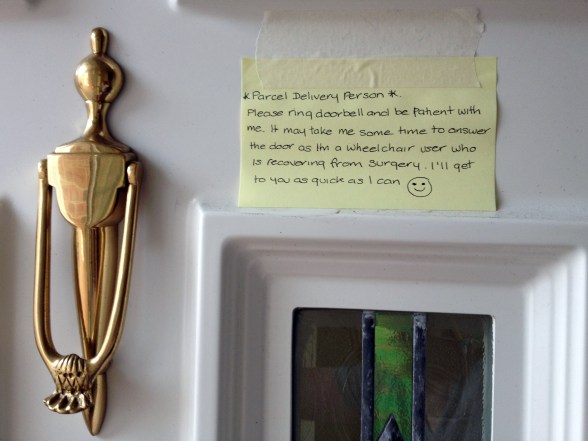 *Parcel Delivery Person *.
Please ring doorbell and be Patient with
me. It may take me some time to answer
the door as Im a wheelchair user who
is recovering from surgery. I'll get
to you as quick as I can